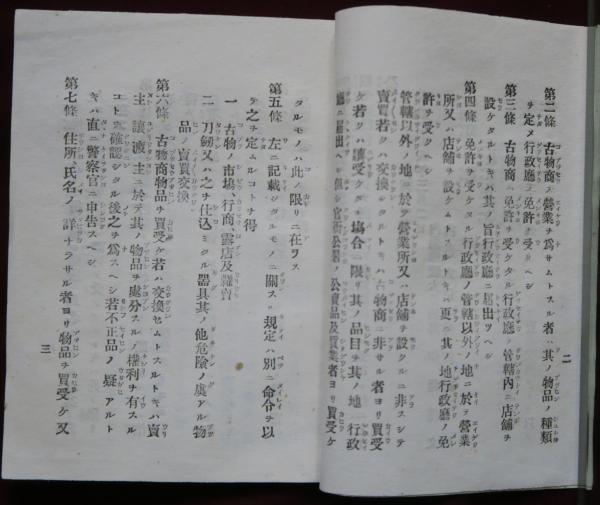 第二條 古物商ノ營業ヲ爲サムトスル者ハ其ノ物品ノ種類
ヲ定メ行政廳ノ免許ヲ受クヘシ
第三條 古物商ノ免許ヲ受ケタル行政廳ノ管轄內ニ店舗ヲ
設ケタルトキハ其ノ旨行政廳ニ屆出ツヘシ
第四條 免許ヲ受ケタル行政廳ノ管轄以外ノ地ニ於テ營業
所又ハ店舗ヲ設ケムトスルトキハ更ニ其ノ地行政廳ノ免
許ヲ受クヘシ
管轄以外ノ地ニ於テ營業所又ハ店舗ヲ設クルニ非スシテ
賣買若クハ交換ヲ トキハ古物商ニ非サル者ヨリ買受
ケ若クハ讓受ケタル場合ニ限リ其ノ品目ヲ其ノ地ノ行政
廳ニ屆出ツヘシ但シ官衙公署ノ公賣品及買業者ヨリ買受ケ
二
タルモノハ此ノ限リニ在ラス
第五條 左ニ記載シタルモノニ關スル規定ハ別ニ命令ヲ以
テ之ヲ定ムルコトヲ得
一 古物ノ市場、行商、露店及糶賣
二 刀劒又ハ之ヲ仕込ミタル器具其ノ他危險ノ虞アル物
品ノ賣買交換
第六條 古物商物品ヲ買受ケ若ハ交換セムトスルトキハ賣
主、讓渡主ニ於テ其ノ物品ヲ處分スルノ權利ヲ有スル
コトヲ確認シタル後之ヲ爲スヘシ若不正品ノ疑アルト
キハ直ニ警察官ニ申告スヘシ
第七條 住所、氏名ノ詳ナラサル者ヨリ物品ヲ買受ケ又
三